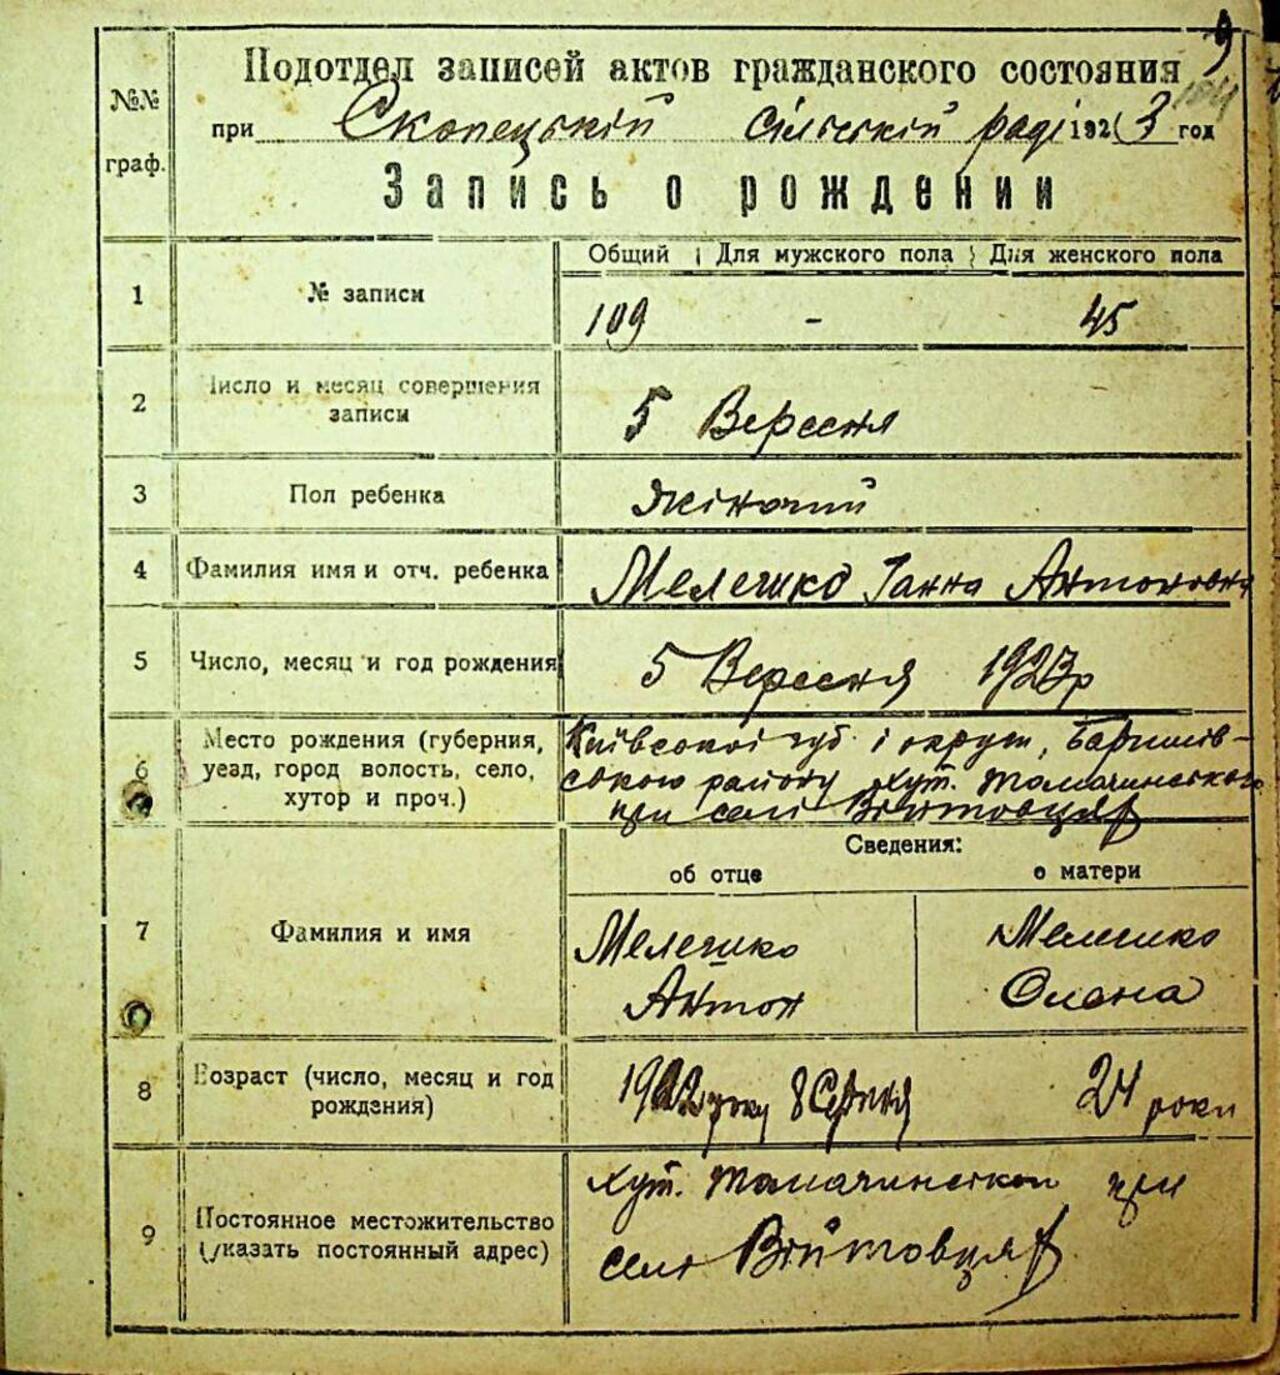 9
№№ граф.
Подотдел записей актов гражданского состояния
при Скопецькій Сільській раді 1923 год
Запись о рождении
Общий Для мужского пола Для женского пола
1 № записи 109 - 45
2 Число и месяц совершения записи 5 Вересня
3 Пол ребенка Жіночий
4 Фамилия имя и отч. ребенка Мелешко Ганна Антоновна
5 Число, месяц и год рождения 5 Вересня 1923р
6 Место рождения (губерния, уезд, город волость, село, хутор и проч.)
Київської губ. і округи, Баришів-
ського району хут.
при селі Війтовцях
Сведения:
об отце о матери
7 Фамилия и имя
Мелешко Мелешко
Антон Олена
8 Возраст (число, месяц и год рождения) 8 Серпня 24 роки
9 Постоянное местожительство (указать постоянный адрес)
хут. при
селі Війтовцях